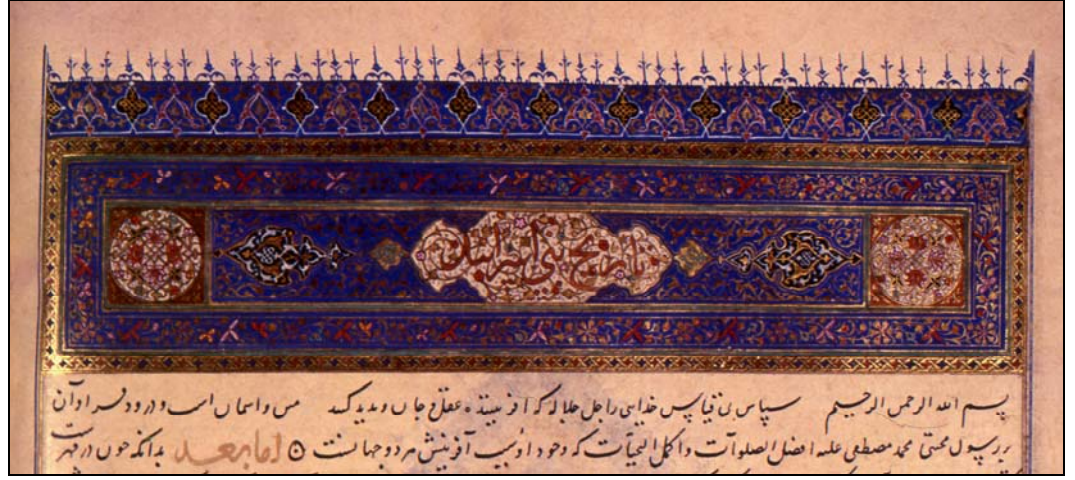 تاریخ بنی اسرائیل
بسم الله الرحمن الرحیم سپاس بی قیاس خدایی را جل جلاله که آفریننده عقل و جان و پدید کننده و آسمان است و درود فراوان
بر رسول مجتبی محمد مصطفی علیه افضل الصلوات و اکمل التحیات که وجود او سبب آفرینش هر دو جهانست اما بعد بدانکه چون در